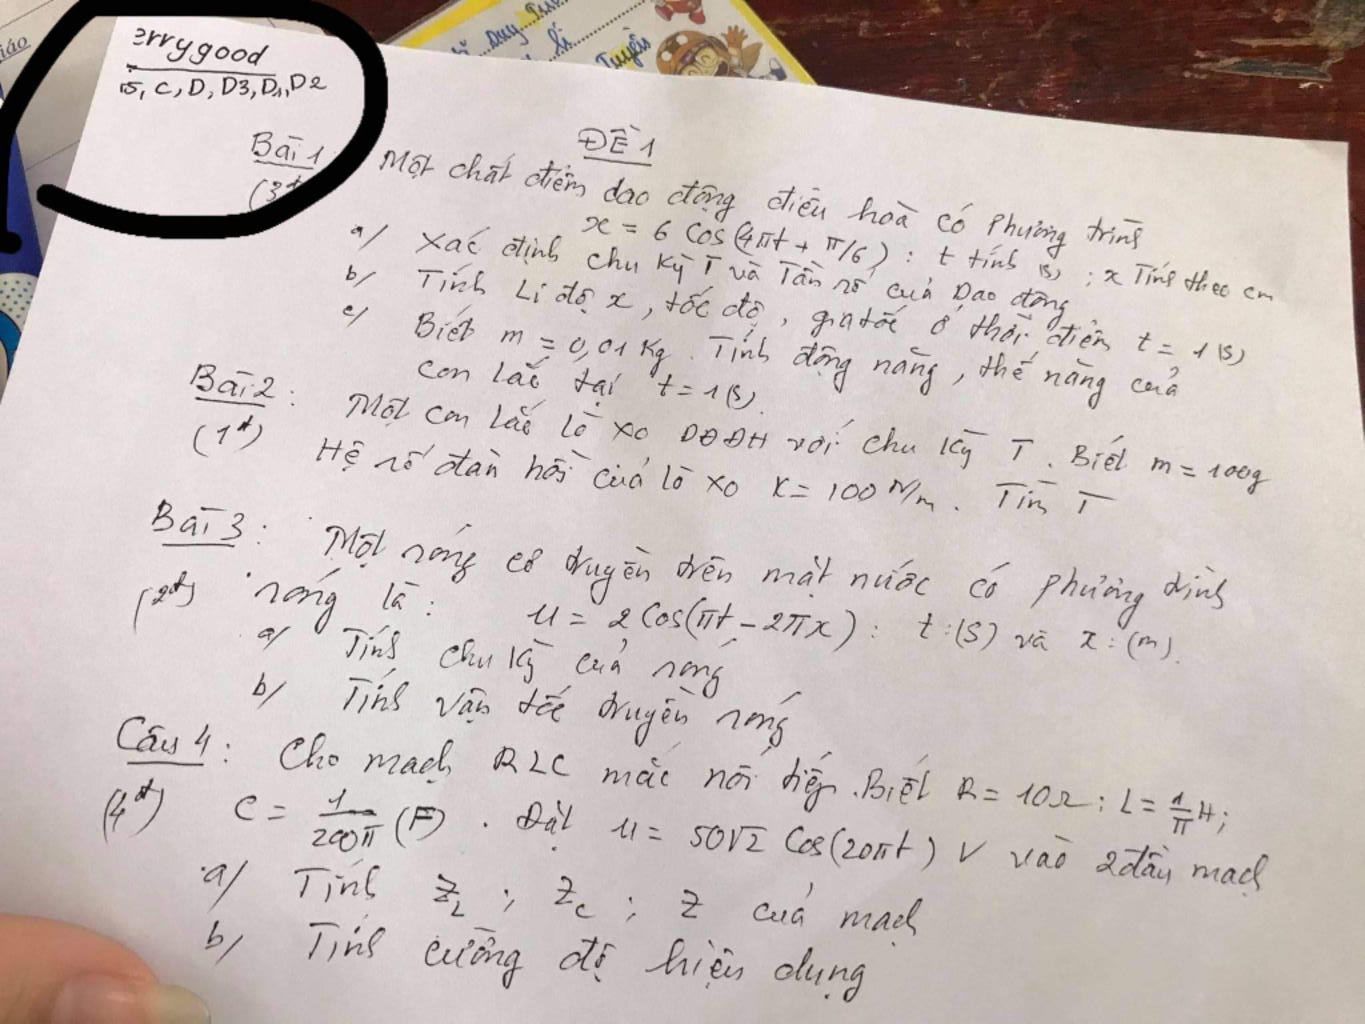 iáo
Duy
Tuyền
errygood
C, D, D3, D1, D2
ĐỀ 1
Bài 1
Một chất điểm dao động điều hoà có phương trình
x = 6 cos(4πt + π/6) : t tính (s) ; x Tính theo cm
a/ Xác định chu kỳ T và Tần số của Dao động
b/ Tính Li độ x, tốc độ, gia tốc ở thời điểm t = 1(s)
c/ Biết m = 0,01 Kg. Tính động năng, thế năng của
con lắc tại t = 1(s).
Bài 2 : Một con lắc lò xo DĐĐH với chu kỳ T. Biết m = 100g
(1đ) Hệ số đàn hồi của lò xo K = 100 N/m. Tính T
Bài 3 : Một sóng cơ truyền trên mặt nước có phương trình
(2đ) sóng là : u = 2 Cos(πt - 2πx) : t:(S) và x:(m).
a/ Tính chu kỳ của sóng
b/ Tính vận tốc truyền sóng
Câu 4 : Cho mạch RLC mắc nối tiếp. Biết R = 10Ω ; L = 1/π H ;
(4đ) C = 1/200π (F). Đặt u = 50√2 Cos(20πt) V vào 2 đầu mạch
a/ Tính Z_L ; Z_C ; Z của mạch
b/ Tính cường độ hiện dụng